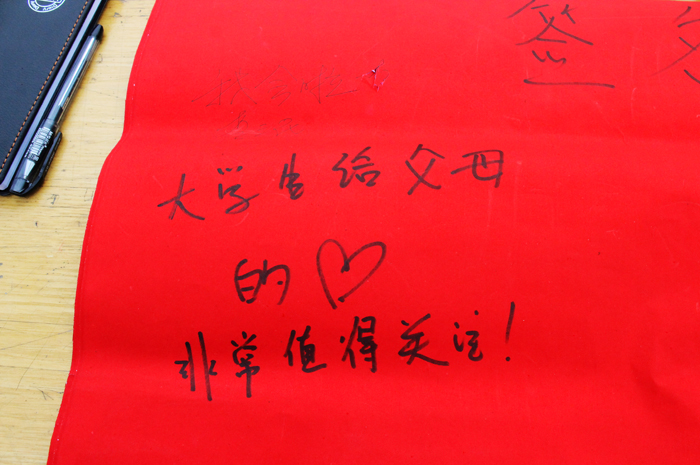 签
大学生给父母
的♡
非常值得关注!